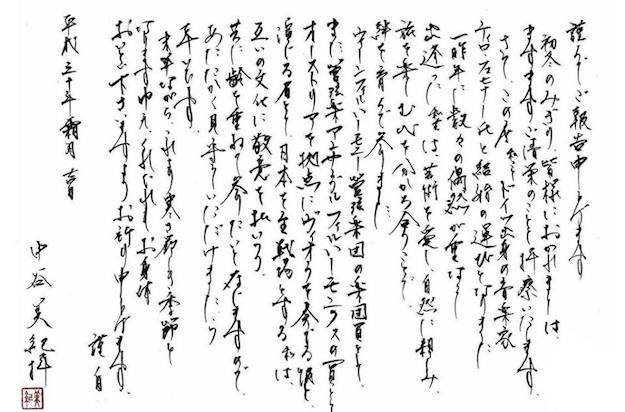 謹んでご報告申し上げます
初冬のみぎり、皆様におかれましては、
ますますご清栄のことと拝察いたします。
さて、この度ドイツ出身の音楽家
ティロ・フェヒナー氏と結婚の運びとなりました。
一昨年に数々の偶然が重なって
出逢った は、芸術を愛し、自然に親しみ、
旅を楽しむ心を分かち合うことで、
絆を育んで参りました。
ウィーンフィルハーモニー管弦楽団の楽団員として、
また管弦楽アンサンブルフィルハーモニクスの一員として
オーストリアを拠点にヴィオラを奏する彼と、
演じる者として日本を主戦場とする私は、
互いの文化に敬意を払いつつ、
共に齢を重ねて参りたいと存じますので、
あたたかく見守っていただけましたら
幸いです。
末筆ながらこれより寒さ厳しき季節と
なりますゆえ、くれぐれもお身体
おいとい下さいますようお祈り申し上げます。
謹白
平成三十年霜月吉日
中谷美紀拝
美紀